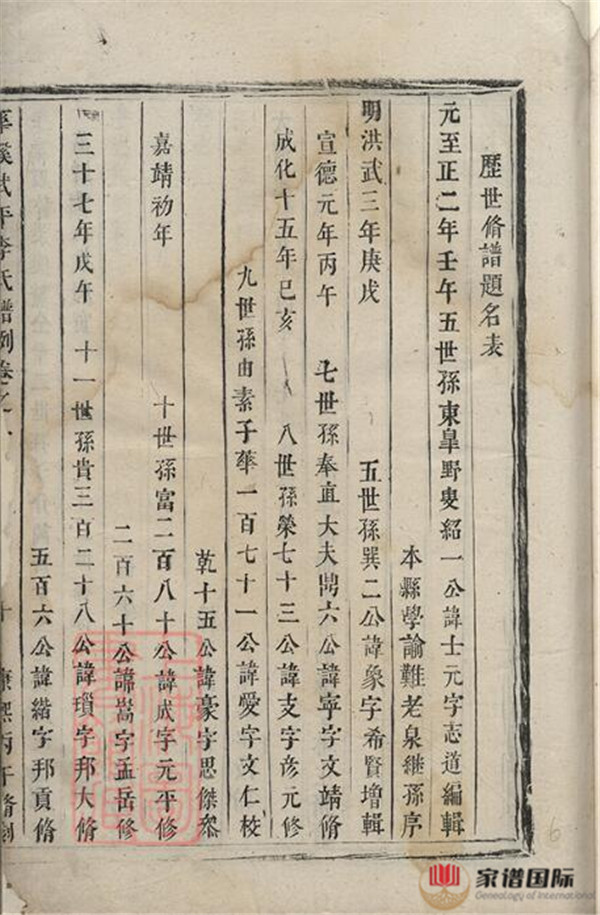 歷世脩譜題名表
元至正二年壬午五世孫東皐野叟紹一公諱士元字志道編輯
本縣學諭難老泉繼孫序
明洪武三年庚戌 五世孫巽二公諱象字希賢增輯
宣德元年丙午 七世孫奉直大夫鬥六公諱寧字文靖脩
成化十五年巳亥 八世孫榮七十三公諱支字彥元修
九世孫由素子華一百七十一公諱愛字文仁校
乾十五公諱豪字思傑叅
嘉靖初年 十世孫富二百八十公諱成字元平修
二百六十公諱嵩字孟岳修
三十七年戊午 十一世孫貴三百二十八公諱瑣字邦大脩
五百六公諱緒字邦貢脩
溪 平李氏譜例卷之 十 康熙丙午脩
家谱国际
Genealogy of International
6